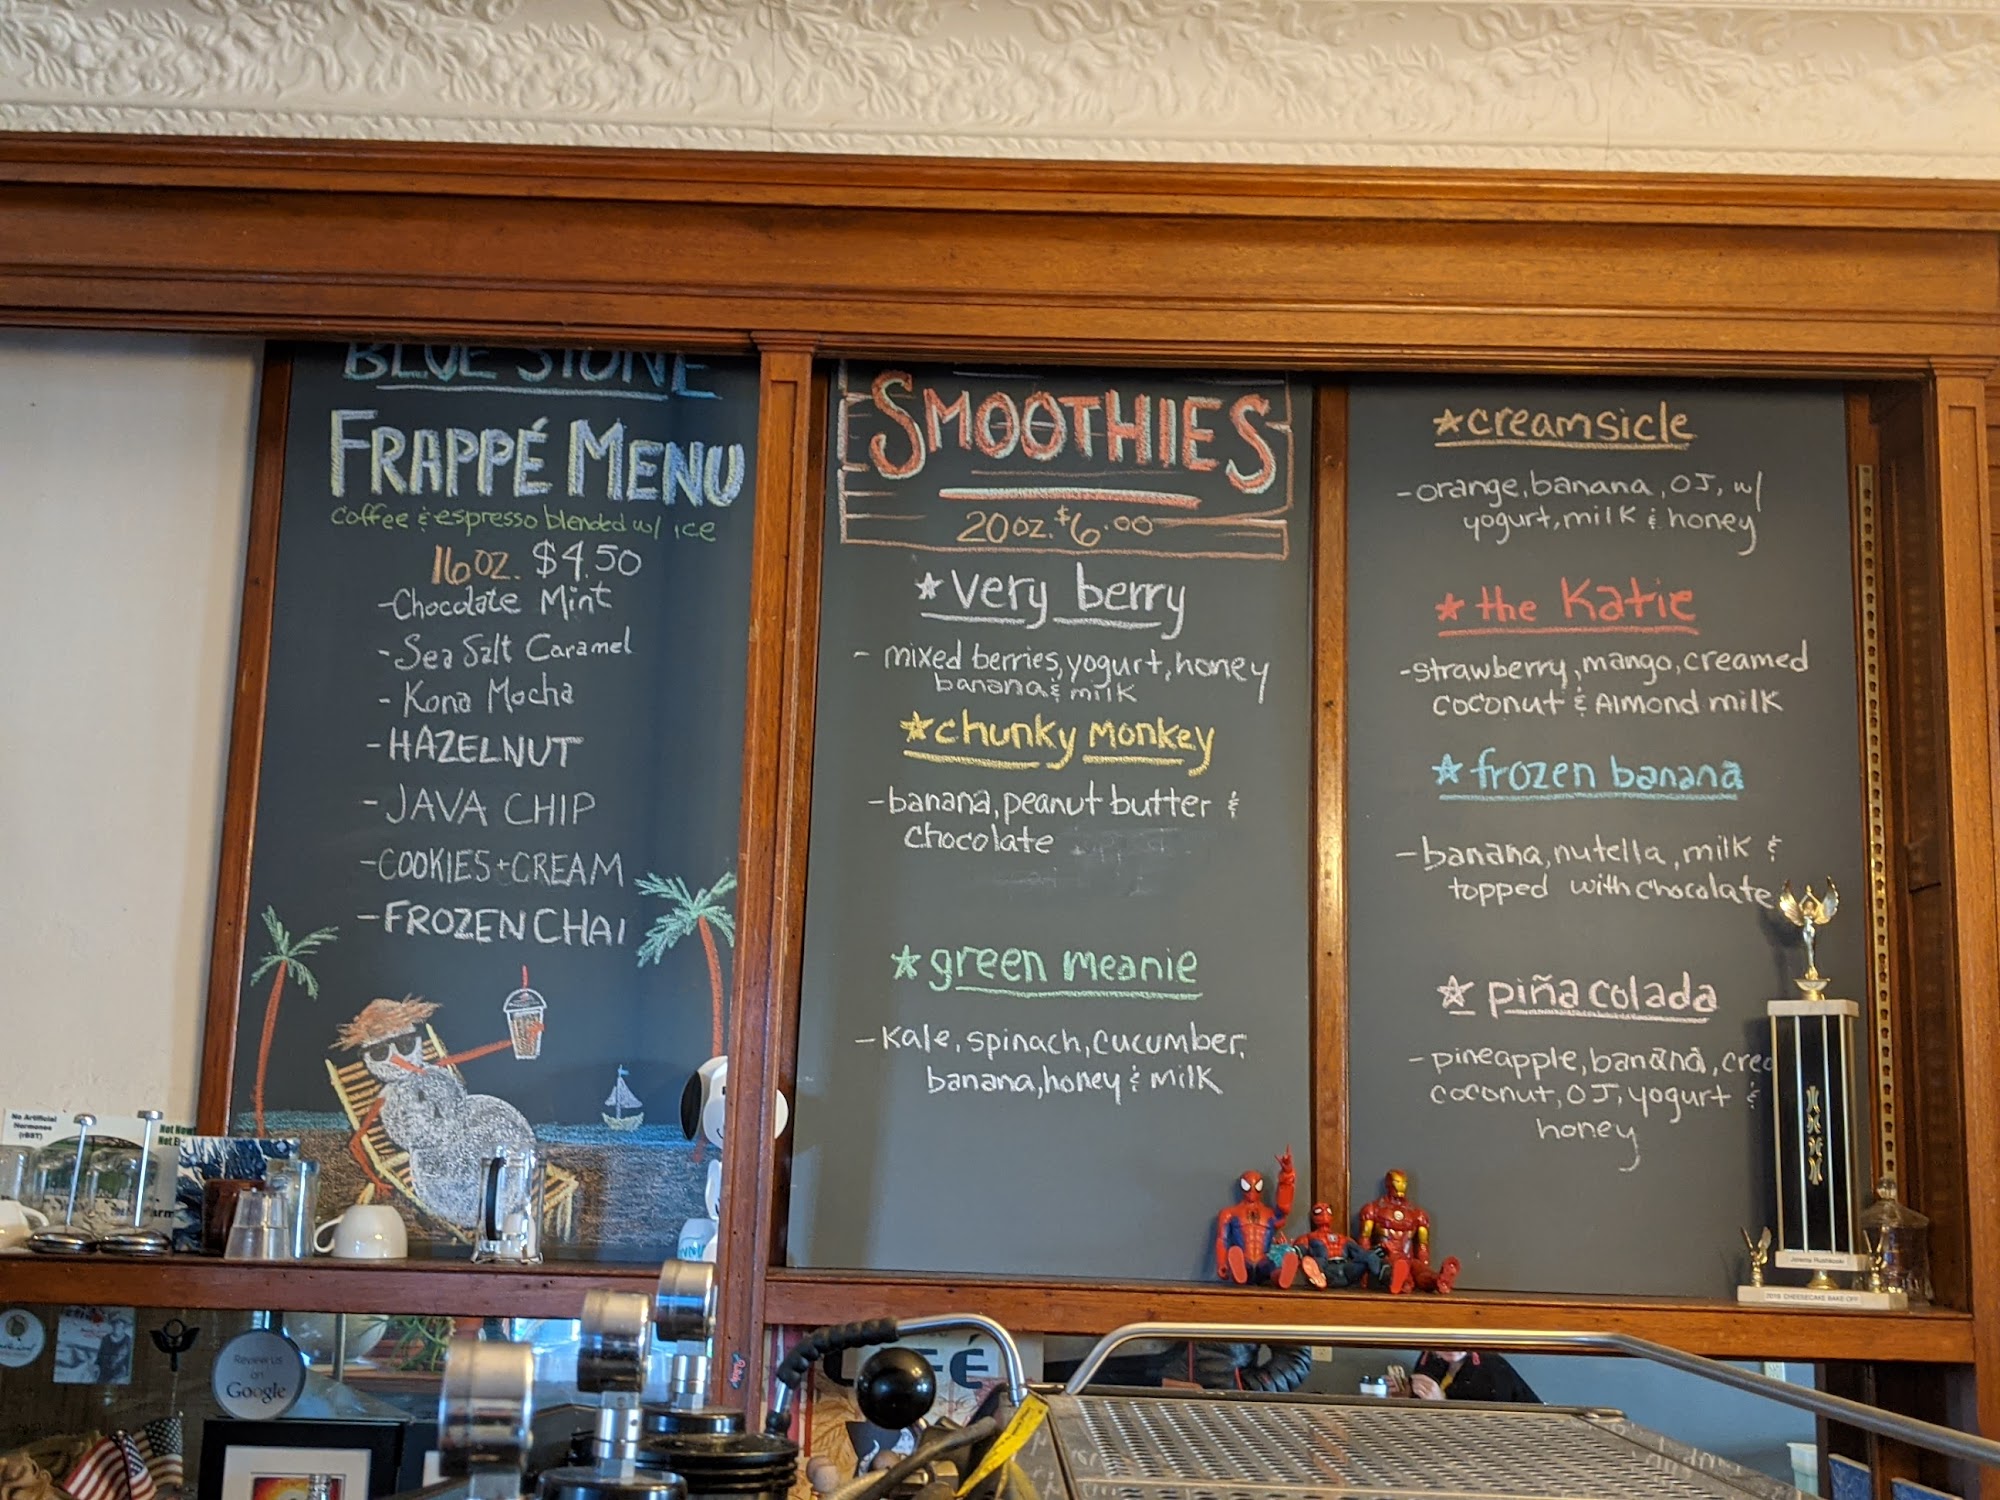 BLUE STONE
FRAPPÉ MENU
coffee & espresso blended w/ ice
16 oz. $4.50
- Chocolate Mint
- Sea Salt Caramel
- Kona Mocha
- HAZELNUT
- JAVA CHIP
- COOKIES + CREAM
- FROZEN CHAI
SMOOTHIES
20 oz. $6.00
★ very berry
- mixed berries, yogurt, honey
banana & milk
★ chunky monkey
- banana, peanut butter &
chocolate
★ green meanie
- kale, spinach, cucumber,
banana, honey & milk
★ creamsicle
- orange, banana, OJ, w/
yogurt, milk & honey
★ the Katie
- strawberry, mango, creamed
coconut & Almond milk
★ frozen banana
- banana, nutella, milk &
topped with chocolate
★ piña colada
- pineapple, banana, crea
coconut, OJ, yogurt &
honey
No Artificial
Hormones
(rBST)
Review us
on
Google
CHEESECAKE BAKE OFF